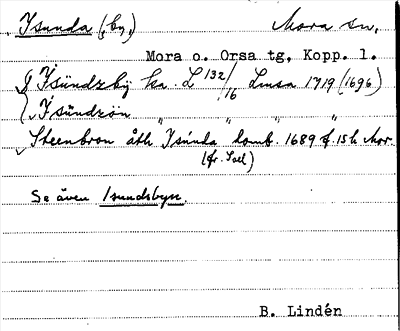 Isunda (by,) Mora sn.
Mora o. Orsa tg, Kopp. l.
Isündzbÿ ka. L 132/16 Lmsa 1719 (1696)
Isündzön " " " "
Steenbron åth Isúnda tomt. 1689 f. 15 h Mor.
(fr. Soll)
Se även Isundsbyn.
B. Lindén